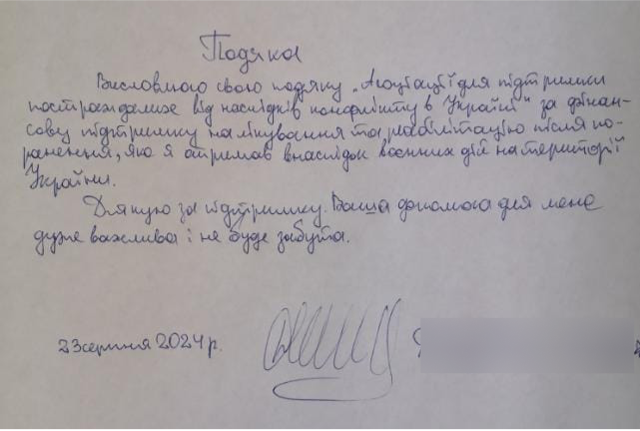 Подяка
Висловлюю свою подяку „Асоціації для підтримки
постраждалих від наслідків конфлікту в Україні" за фінан-
сову підтримку на лікування та реабілітацію після по-
ранення, яке я отримав внаслідок воєнних дій на території
України.
Дякую за підтримку. Ваша допомога для мене
дуже важлива і не буде забута.
23 серпня 2024 р.